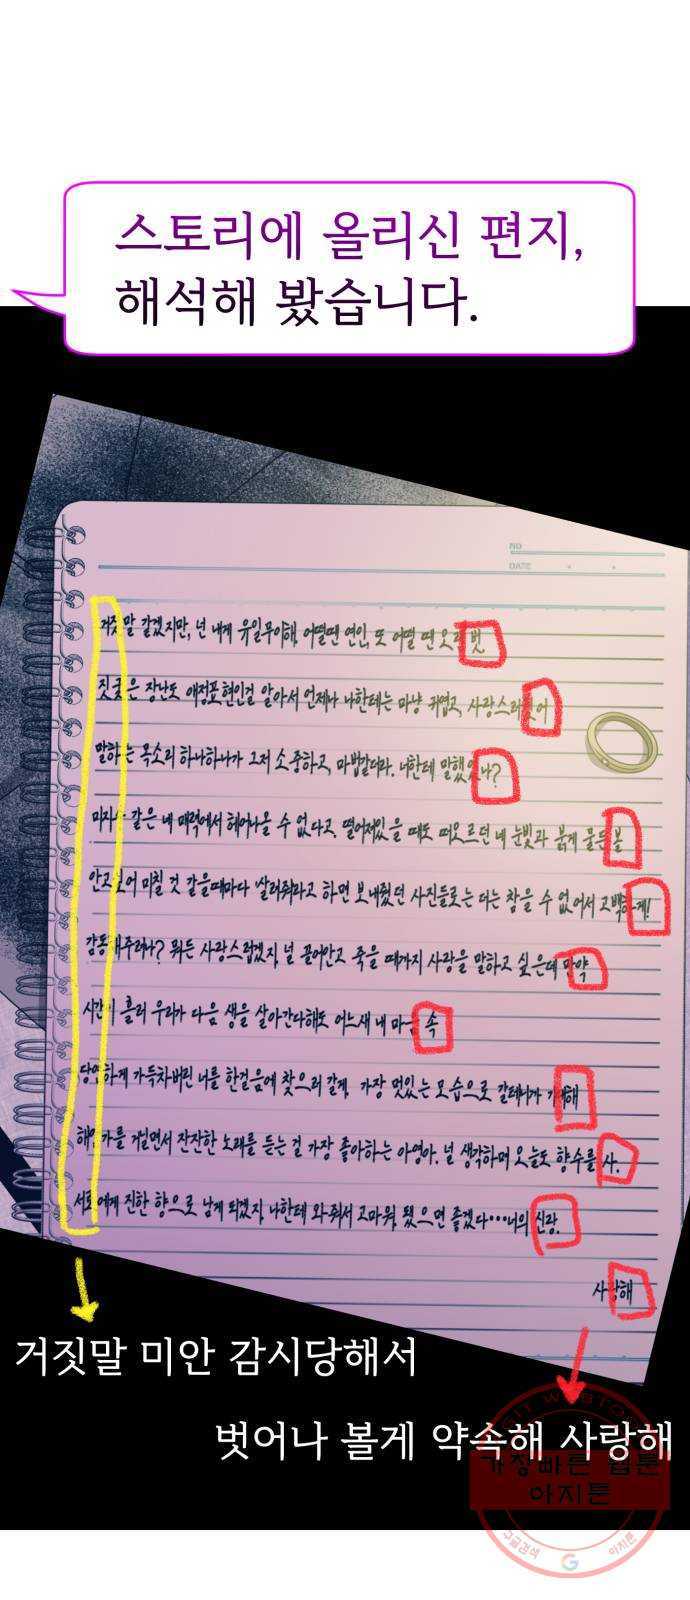 스토리에 올리신 편지,
해석해 봤습니다.
NO
DATE
거짓말 같겠지만, 넌 내게 유일무이해. 어떨땐 연인, 또 어떨 땐 오랜 벗
짓궂은 장난도 애정표현인걸 알아서 언제나 나한테는 마냥 귀엽고, 사랑스러웠어
말하는 목소리 하나하나가 그저 소중하고, 마법같더라. 너한테 말했었나?
같은 네 매력에서 헤어나올 수 없다고. 떨어져있을 때도 떠오르던 네 눈빛과 붉게 물든 볼
안고싶어 미칠 것 같을때마다 살려줘라고 하면 보내줬던 사진들로는 더는 참을 수 없어서 고백할게!
감동해주려나? 뭐든 사랑스럽겠지, 널 끌어안고 죽을 때까지 사랑을 말하고 싶은데 만약
시간이 흘러 우리가 다음 생을 살아간다해도 어느새 내 마음 속
당연하게 가득차버린 너를 한걸음에 찾으러 갈게. 가장 멋있는 모습으로 갈테니까 기대해
해안가를 거닐면서 잔잔한 노래를 듣는 걸 가장 좋아하는 아영아. 널 생각하며 오늘도 향수를 사.
서로에게 진한 향으로 남게 되겠지, 나한테 와줘서 고마워. 됐으면 좋겠다…너의 신랑.
사랑해
거짓말 미안 감시당해서
벗어나 볼게 약속해 사랑해
가장빠른 웹툰
아지툰
구글검색
아지툰